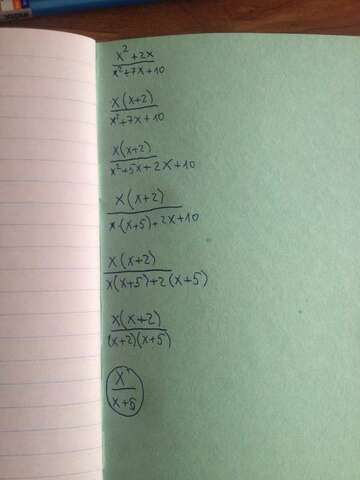 x² + 2x / x² + 7x + 10
x(x+2) / x² + 7x + 10
x(x+2) / x² + 5x + 2x + 10
x(x+2) / x·(x+5) + 2x + 10
x(x+2) / x(x+5) + 2(x+5)
x(x+2) / (x+2)(x+5)
x / x+5